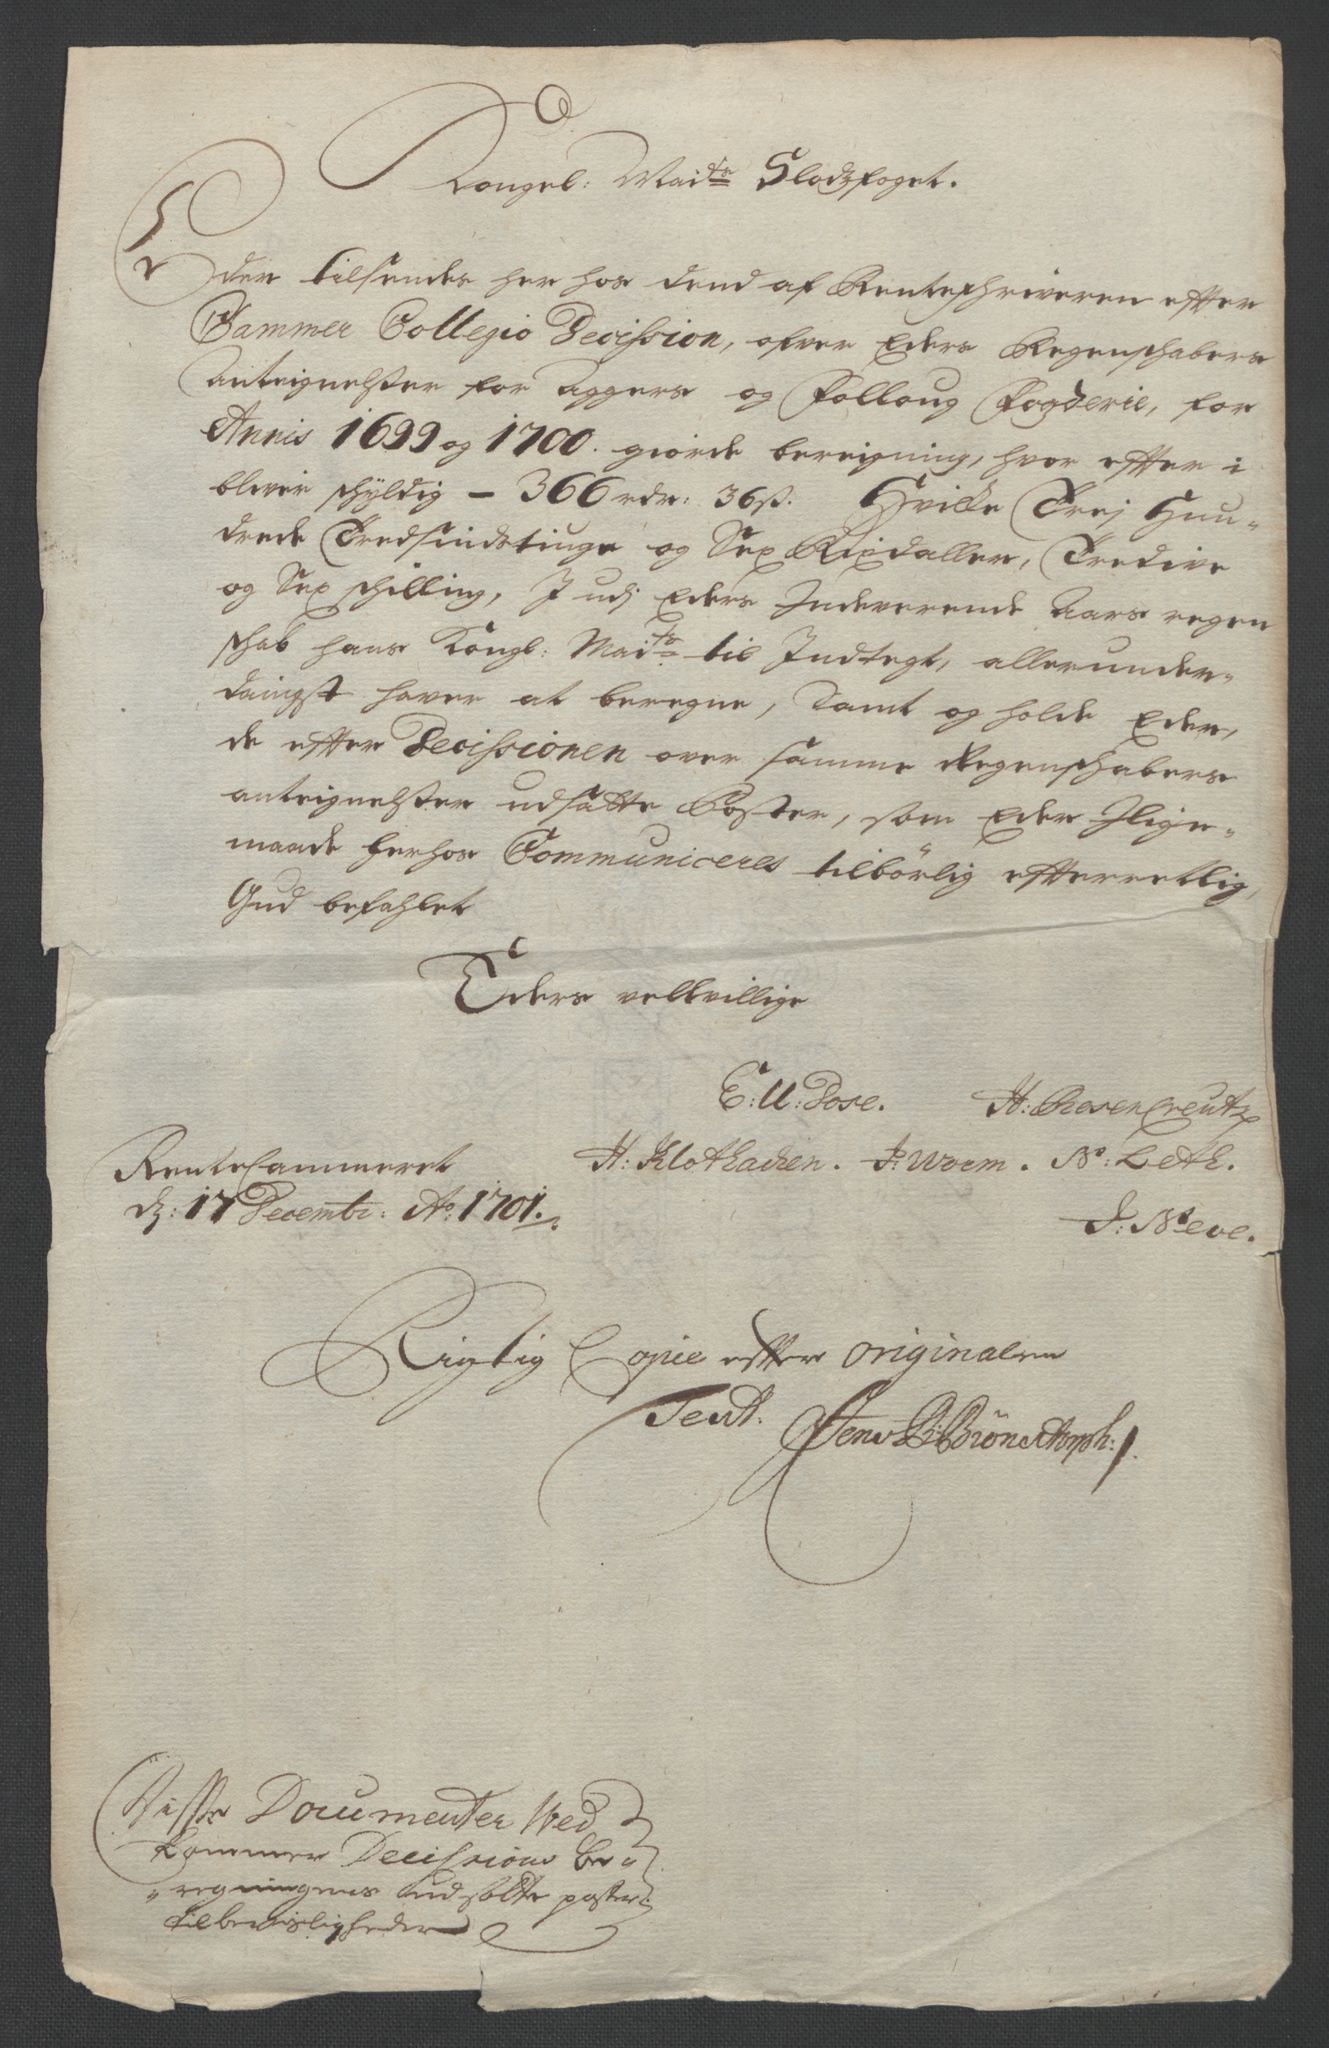 Kongel: Maits Slodzfoget.
Eder tilsendes her hos dend af Renteschriveren efter
Cammer Collegio Decission, ofver Eders Regenschabers
Anteignelsser for Aggers og Folloug Fogderie, for
Annis 1699 og 1700. giorde bereigning, hvor efter i
blever schyldig – 366 rdr: 36 s. Hvilke Trej Hun-
drede Tredsindstiuge og Sex Rixdaller, Tredive
og Sex schilling, I udj Eders Indeverende Aars regen
schab hans Kongl: Maits til Indtegt, allerunder-
danigst haver at beregne, Samt og holde Eder,
de efter Decissionen over samme Regenschabers
anteignelsser udsatte Poster, som Eder Ilige-
maade herhos Communiceres tilbörlig efterretlig,
Gud befahlet
Eders velvillige
E: U: Dose. H: Rosencreutz
RenteCammeret H: Klothacken. J: Worm. N: Leth.
dz: 17 Decembr: Ao: 1701. J: Neve.
Rigtig Copie efter originalen
Test. Jens Brönstorph:
Disse Documenter Ved
kommer Decissions be-
regningens udsatte poster
til bevisligheder